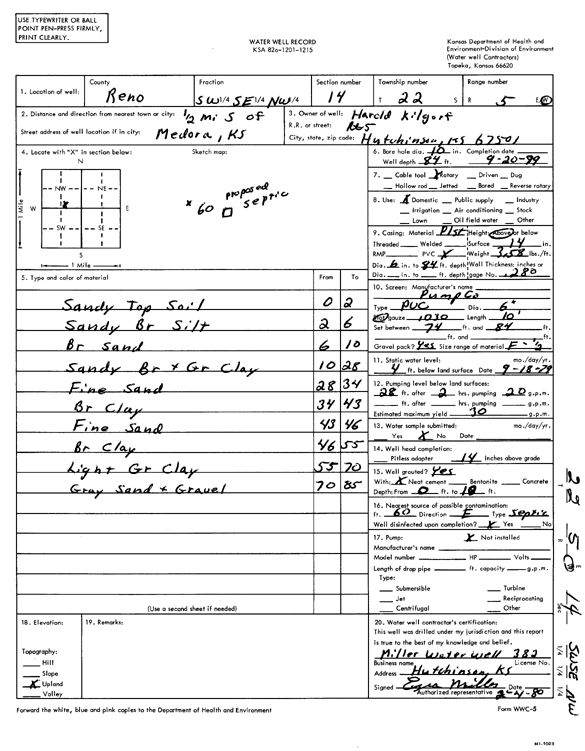 USE TYPEWRITER OR BALL
POINT PEN-PRESS FIRMLY,
PRINT CLEARLY.
WATER WELL RECORD
KSA 82a-1201-1215
Kansas Department of Health and
Environment-Division of Environment
(Water well Contractors)
Topeka, Kansas 66620
1. Location of well: County Reno Fraction SW 1/4 SE 1/4 NW 1/4 Section number 14 Township number T 22 S Range number R 5 E/W
2. Distance and direction from nearest town or city: 1/2 mi S of
Street address of well location if in city: Medora, KS
3. Owner of well: Harold
R.R. or street: RR5
City, state, zip code: Hutchinson, KS 67501
4. Locate with "X" in section below:
N
NW NE
W X E
SW SE
S
1 Mile
1 Mile
Sketch map:
x 60 proposed septic
6. Bore hole dia. 10 in. Completion date
Well depth 84 ft. 9-20-79
7. Cable tool X Rotary Driven Dug
Hollow rod Jetted Bored Reverse rotary
8. Use: X Domestic Public supply Industry
Irrigation Air conditioning Stock
Lawn Oil field water Other
9. Casing: Material Plst Height: Above or below
Threaded Welded Surface 14 in.
RMP PVC X Weight 3.58 lbs./ft.
Dia. 6 in. to 84 ft. depth Wall Thickness: inches or
Dia. in. to ft. depth gage No. .280
5. Type and color of material From To
Sandy Top Soil 0 2
Sandy Br Silt 2 6
Br Sand 6 10
Sandy Br + Gr Clay 10 28
Fine Sand 28 34
Br Clay 34 43
Fine Sand 43 46
Br Clay 46 55
Light Gr Clay 55 70
Gray Sand + Gravel 70 85
(Use a second sheet if needed)
10. Screen: Manufacturer's name
PumpCo
Type PVC Dia. 6"
Slot/gauze .030 Length 10'
Set between 74 ft. and 84 ft.
ft. and ft.
Gravel pack? Yes Size range of material
11. Static water level: mo./day/yr.
4 ft. below land surface Date 9-18-79
12. Pumping level below land surfaces:
28 ft. after 2 hrs. pumping 20 g.p.m.
ft. after hrs. pumping g.p.m.
Estimated maximum yield 30 g.p.m.
13. Water sample submitted: mo./day/yr.
Yes X No Date
14. Well head completion:
Pitless adapter 14 Inches above grade
15. Well grouted? Yes
With: X Neat cement Bentonite Concrete
Depth: From 0 ft. to 10 ft.
16. Nearest source of possible contamination:
ft. 60 Direction E Type Septic
Well disinfected upon completion? X Yes No
17. Pump: X Not installed
Manufacturer's name
Model number HP Volts
Length of drop pipe ft. capacity g.p.m.
Type:
Submersible Turbine
Jet Reciprocating
Centrifugal Other
18. Elevation:
Topography:
Hill
Slope
X Upland
Valley
19. Remarks:
20. Water well contractor's certification:
This well was drilled under my jurisdiction and this report
is true to the best of my knowledge and belief.
Miller Water Well 382
Business name License No.
Address Hutchinson, KS
Signed Ezra Miller Date
Authorized representative
Forward the white, blue and pink copies to the Department of Health and Environment
Form WWC-5
22 5 W
14 SWSE NW
Sec 1/4 1/4 1/4